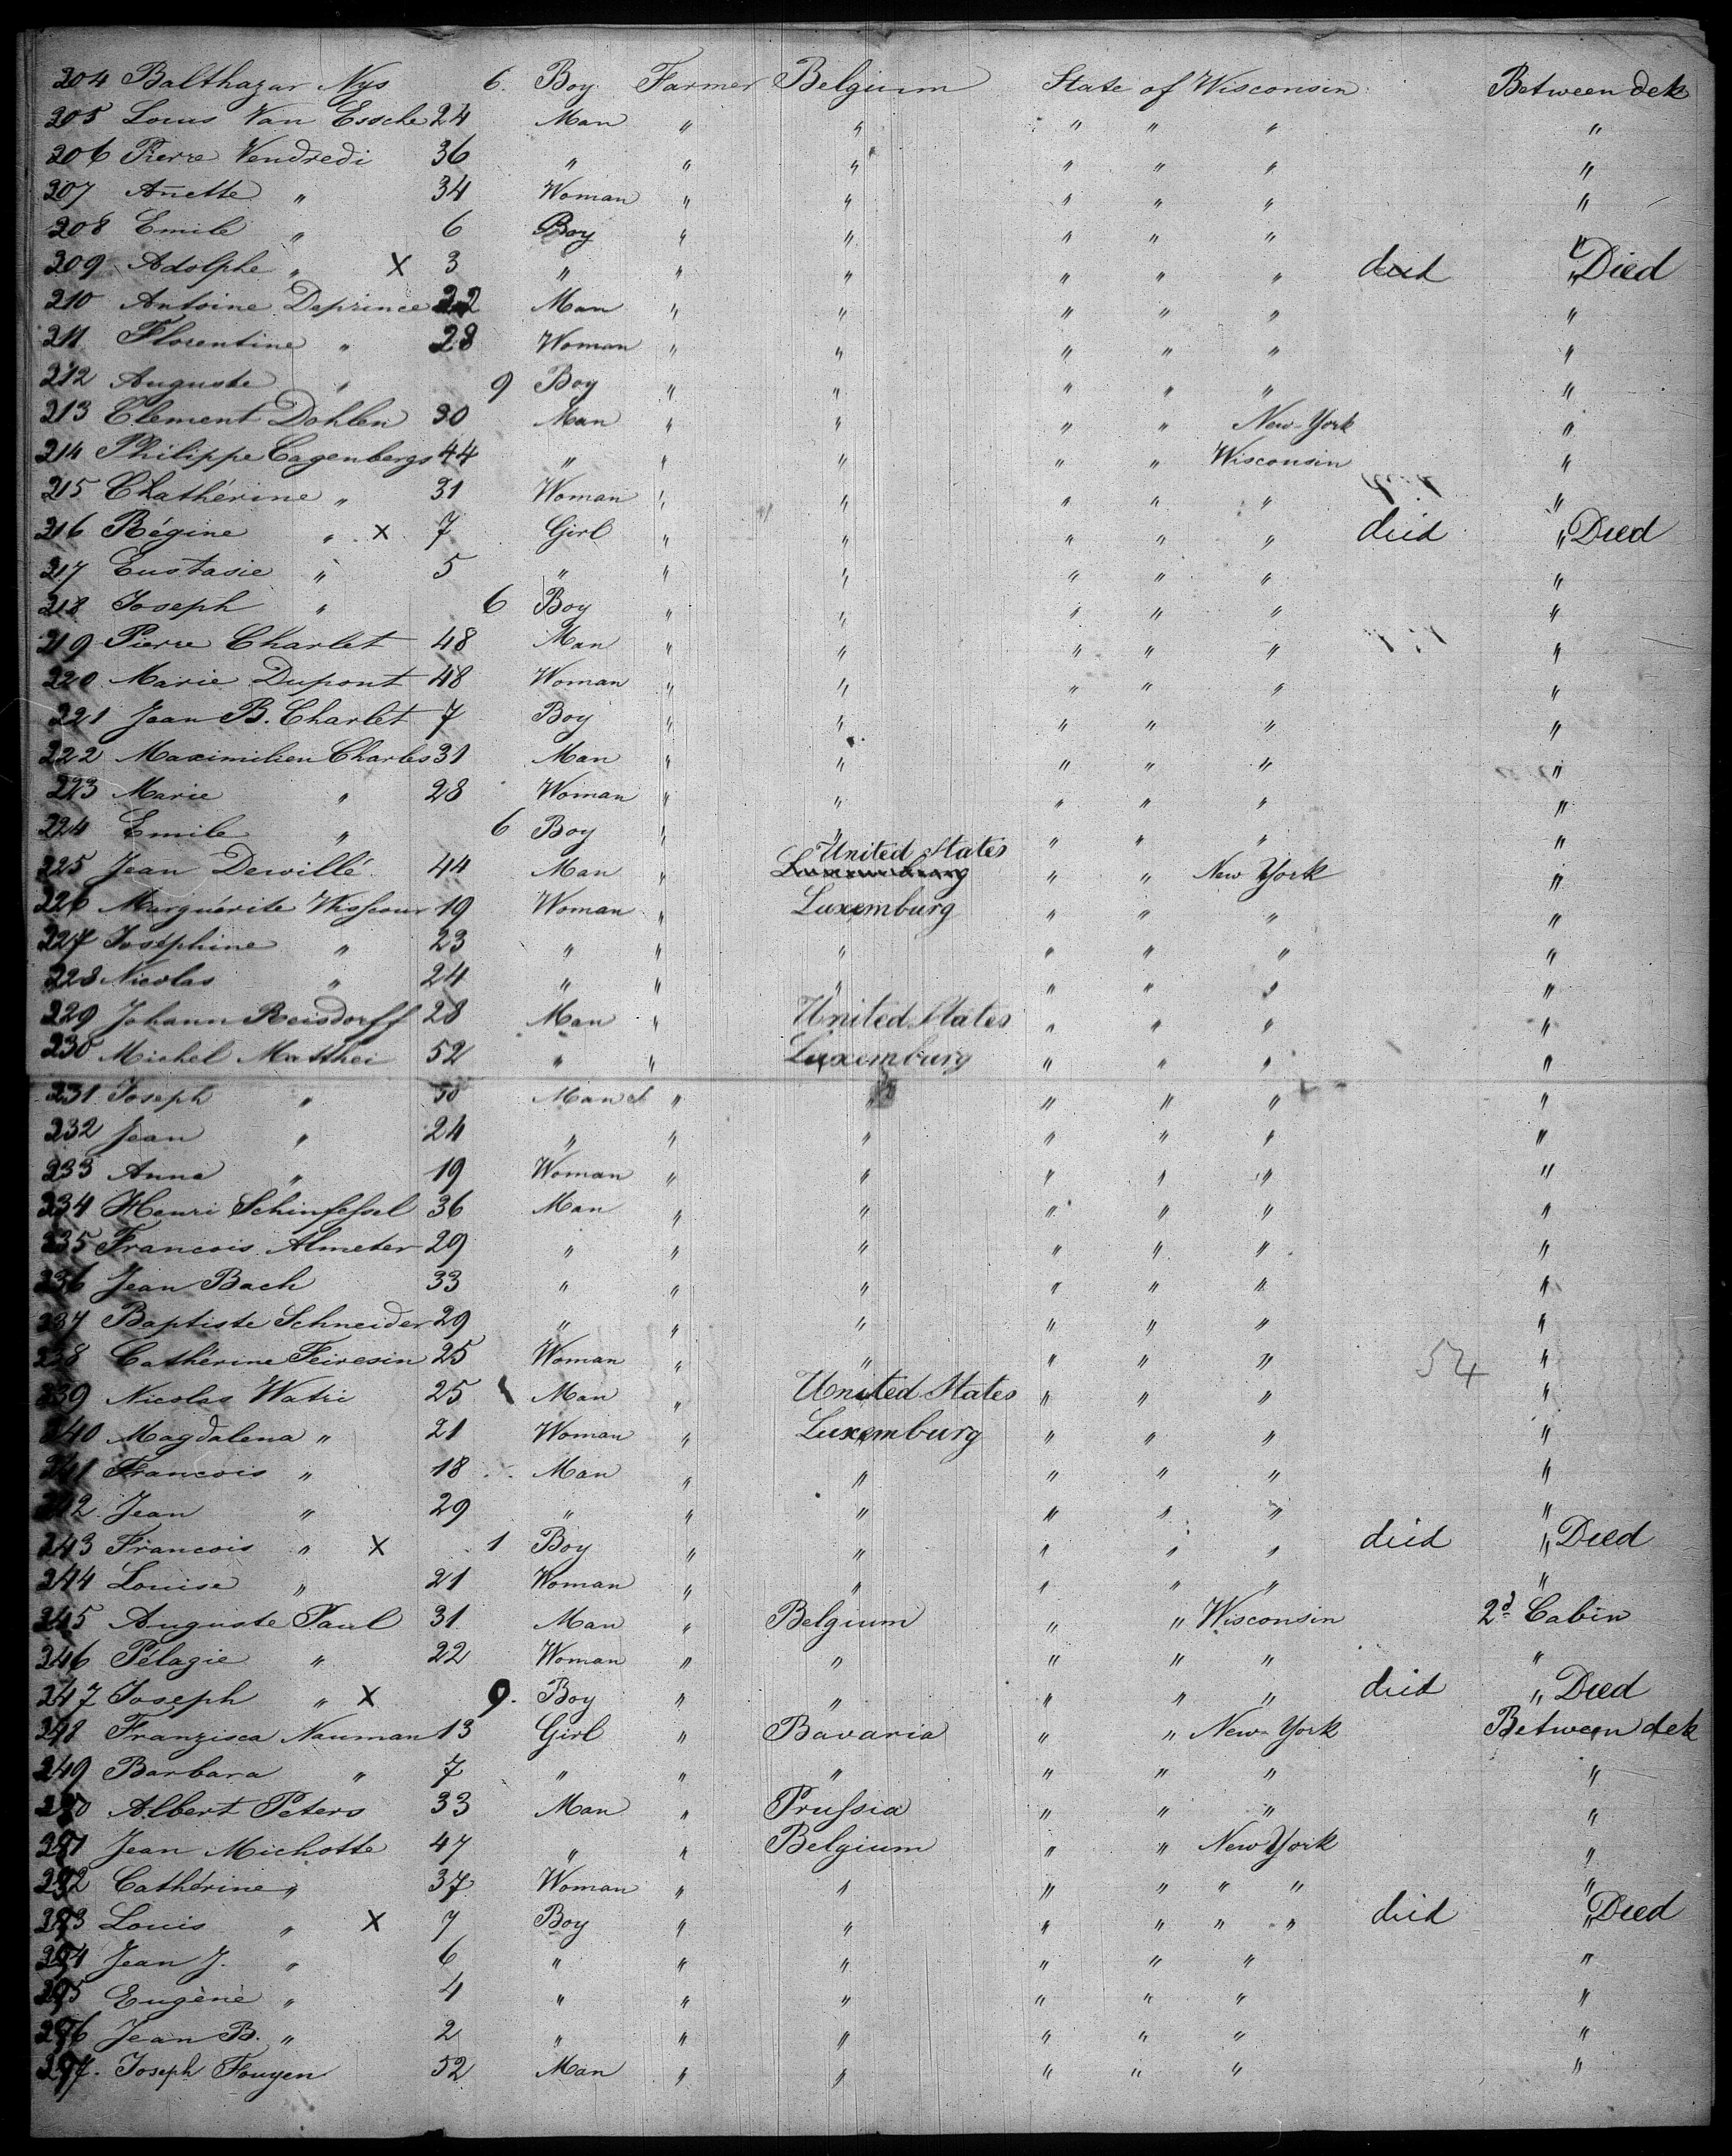 204 Balthazar Nys 6. Boy Farmer Belgium State of Wisconsin Between dek
205 Louis Van Essche 24 Man " " " " " "
206 Pierre Vendredi 36 " " " " " " "
207 Anette " 34 Woman " " " " " "
208 Emile " 6 Boy " " " " " "
209 Adolphe " X 3 " " " " " " died " Died
210 Antoine Deprince 22 Man " " " " " "
211 Florentine " 28 Woman " " " " " "
212 Auguste " 9 Boy " " " " " "
213 Clement Dohlen 30 Man " " " " New-York "
214 Philippe Cagenbergs 44 " " " " " Wisconsin "
215 Chathérine " 31 Woman " " " " " "
216 Régine " X 7 Girl " " " " " died " Died
217 Eustasie " 5 " " " " " " "
218 Joseph " 6 Boy " " " " " "
219 Pierre Charlet 48 Man " " " " " "
220 Marie Dupont 48 Woman " " " " " "
221 Jean B. Charlet 7 Boy " " " " " "
222 Maximilien Charles 31 Man " " " " " "
223 Marie " 28 Woman " " " " " "
224 Emile " 6 Boy " " " " " "
225 Jean Dewillé 44 Man " United States Luxemburg " " New York "
226 Marguérite 19 Woman " Luxemburg " " " "
227 Joséphine " 23 " " " " " " "
228 Nicolas " 24 " " " " " " "
229 Johann Reisdorff 28 Man " United States " " " "
230 Michel Matthei 52 " " Luxemburg " " " "
231 Joseph " 50 Man " " " " " "
232 Jean " 24 " " " " " " "
233 Anna " 19 Woman " " " " " "
234 Henri Schinfessel 36 Man " " " " " "
235 Francois Almeter 29 " " " " " " "
236 Jean Bach 33 " " " " " " "
237 Baptiste Schneider 29 " " " " " " "
238 Cathérine Feiresin 25 Woman " " " " " 54 "
239 Nicolas Watri 25 Man " United States " " " "
240 Magdalena " 21 Woman " Luxemburg " " " "
241 Francois " 18 Man " " " " " "
242 Jean " 29 " " " " " " "
243 Francois " X 1 Boy " " " " " died " Died
244 Louise " 21 Woman " " " " " "
245 Auguste Paul 31 Man " Belgium " " Wisconsin 2d Cabin
246 Pélagie " 22 Woman " " " " " "
247 Joseph " X 9. Boy " " " " " died " Died
248 Franzisca Nauman 13 Girl " Bavaria " " New-York Between dek
249 Barbara " 7 " " " " " " "
250 Albert Peters 33 Man " Prussia " " " "
251 Jean Michotte 47 " " Belgium " " New York "
252 Cathérine " 37 Woman " " " " " " "
253 Louis " X 7 Boy " " " " " " died " Died
254 Jean J. " 6 " " " " " " "
255 Eugène " 4 " " " " " " "
256 Jean B. " 2 " " " " " " "
257. Joseph Fouyen 52 Man " " " " " "